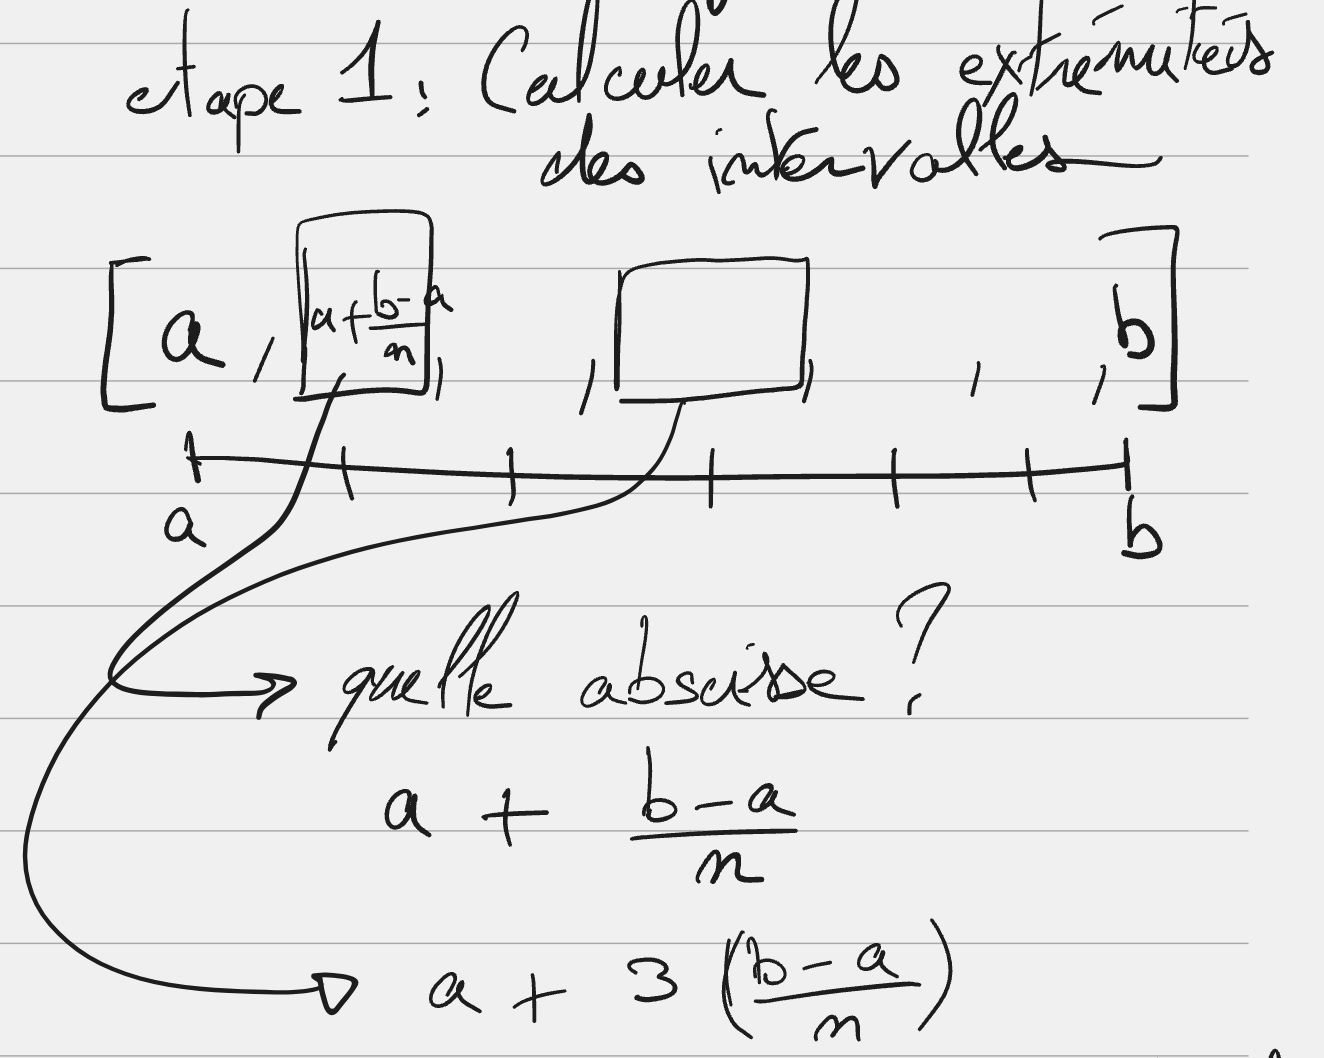 etape 1: Calculer les extrémités
des intervalles
[ a, a + b-a/n, , , , b ]
a b
quelle abscisse ?
a + b-a/n
a + 3 (b-a/n)